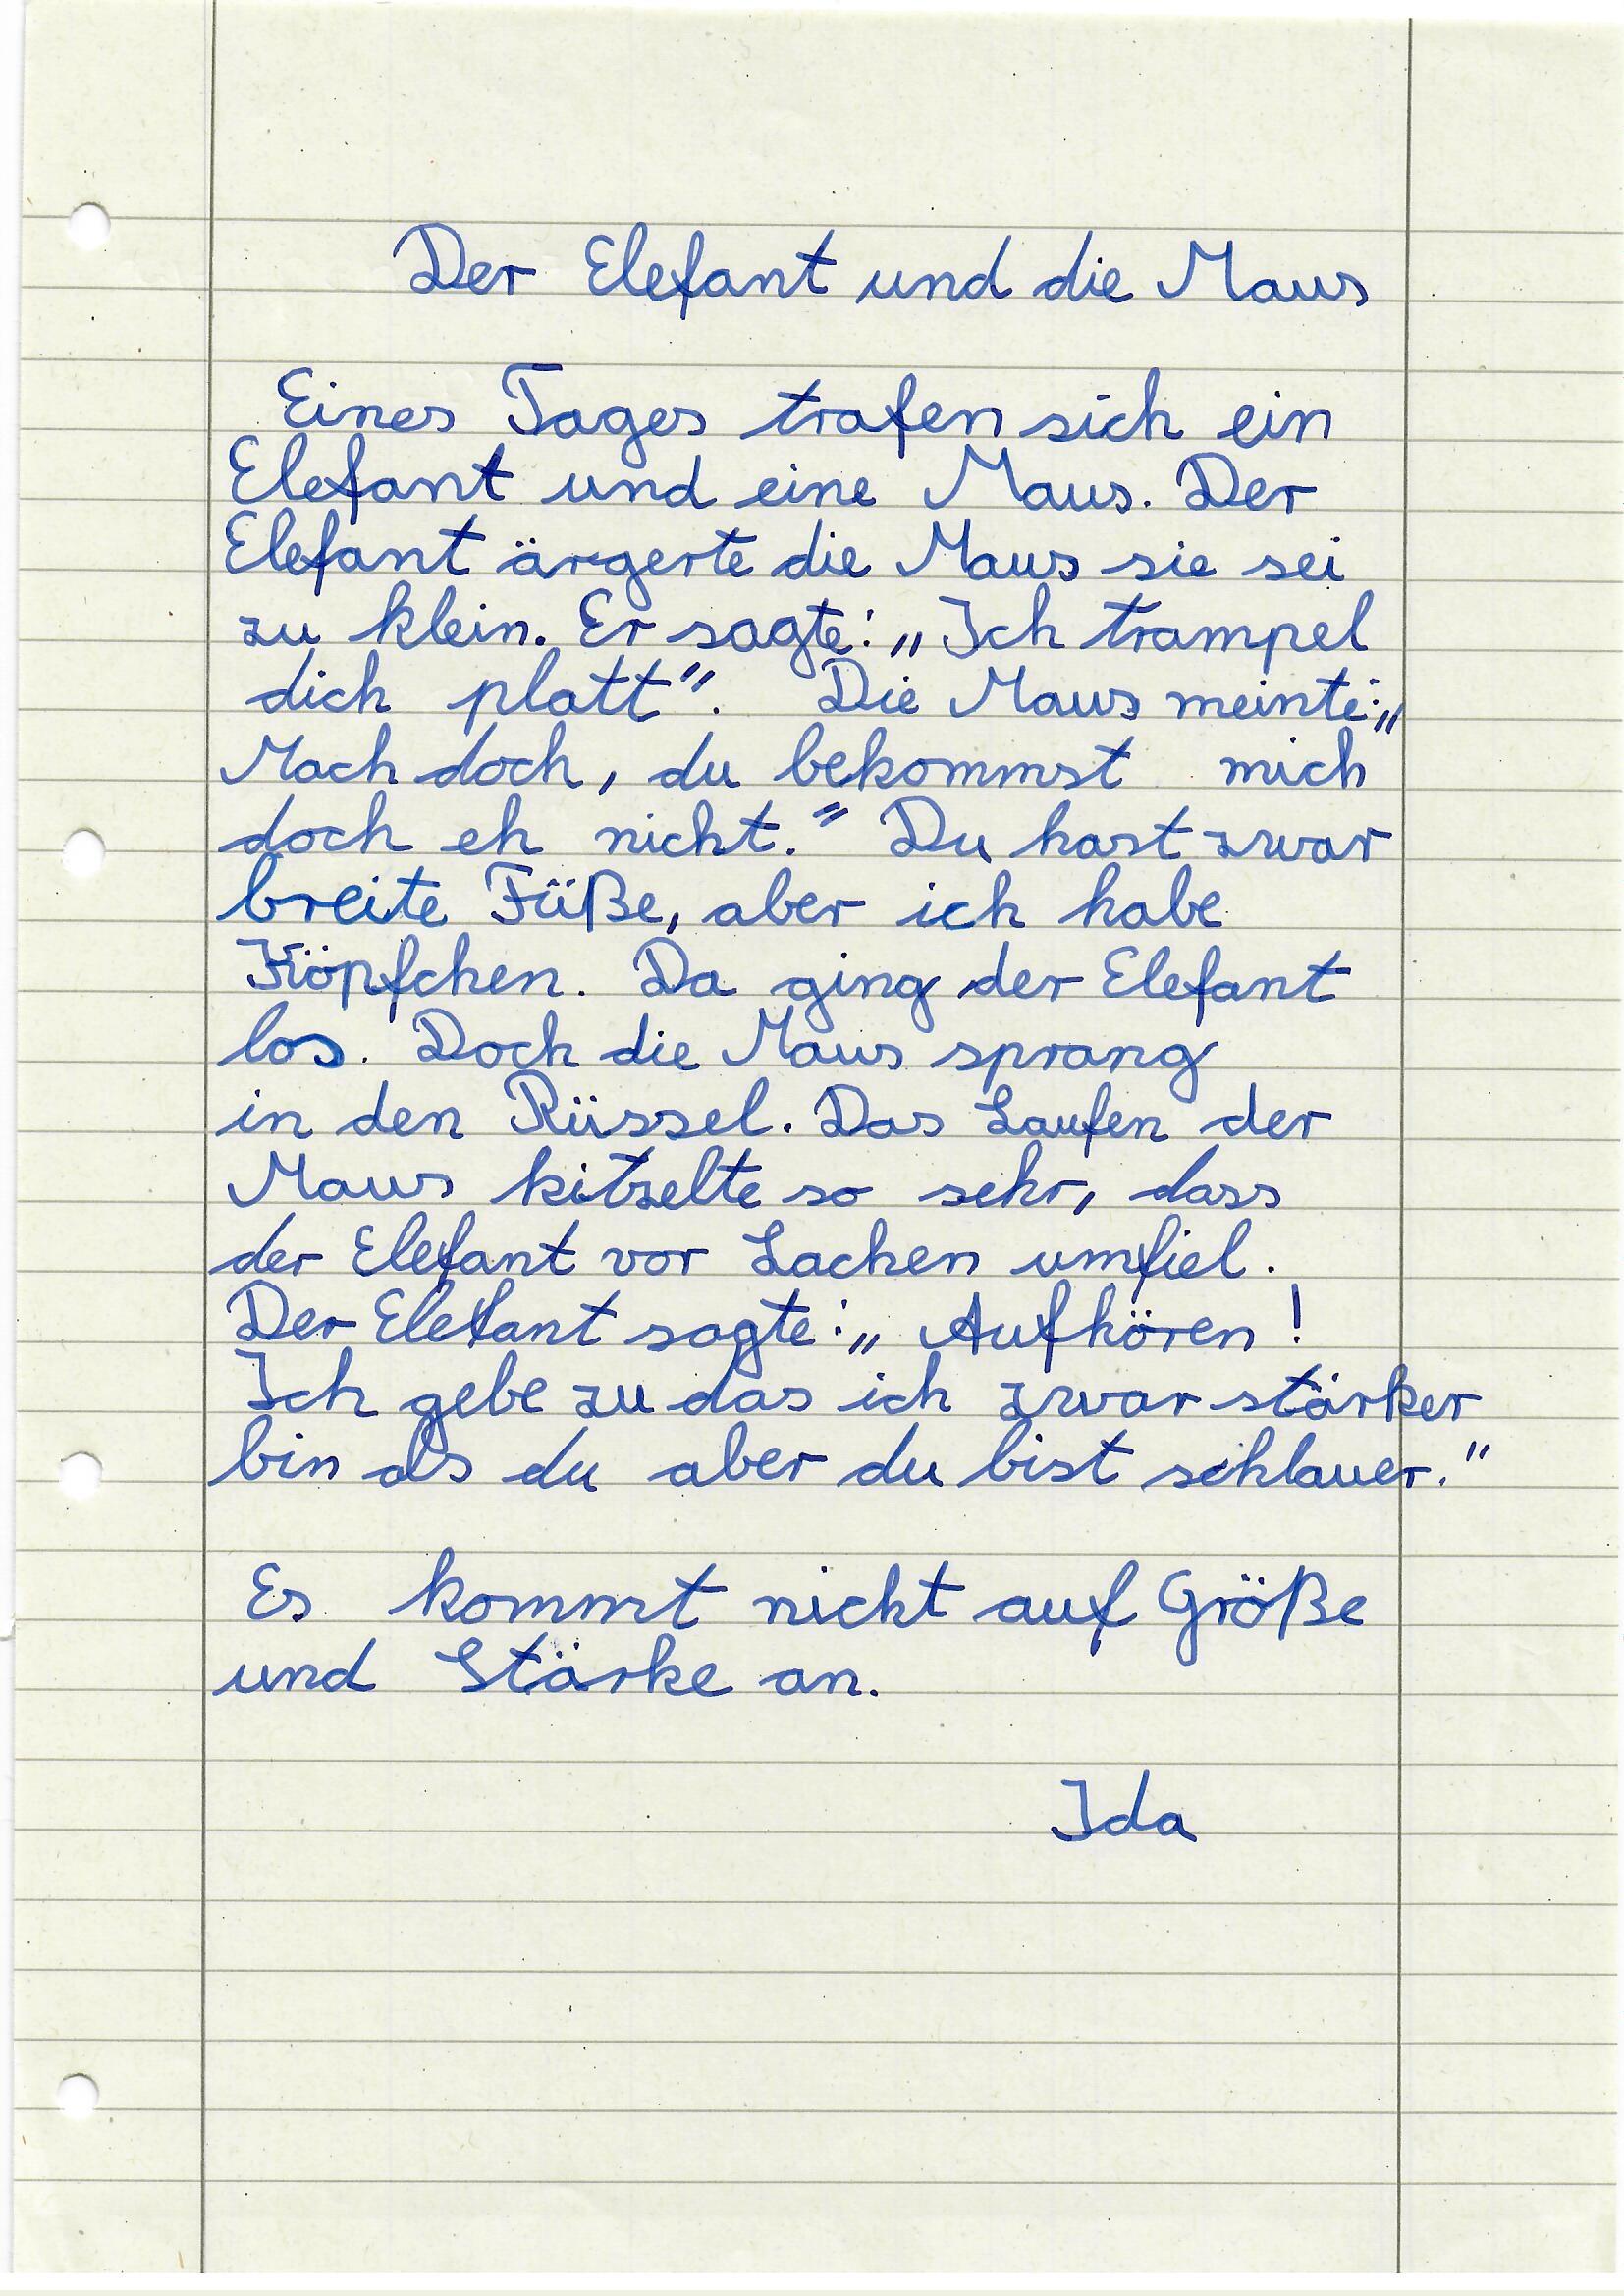 Der Elefant und die Maus
Eines Tages trafen sich ein
Elefant und eine Maus. Der
Elefant ärgerte die Maus sie sei
zu klein. Er sagte: „Ich trampel
dich platt“. Die Maus meinte: „
Mach doch, du bekommst mich
doch eh nicht.“ Du hast zwar
breite Füße, aber ich habe
Köpfchen. Da ging der Elefant
los. Doch die Maus sprang
in den Rüssel. Das Laufen der
Maus kitzelte so sehr, dass
der Elefant vor Lachen umfiel.
Der Elefant sagte: „Aufhören!
Ich gebe zu das ich zwar stärker
bin als du aber du bist schlauer.“
Es kommt nicht auf Größe
und Stärke an.
Ida